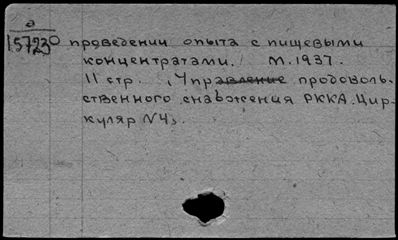 а
15723
О проведении опыта с пищевыми
концентратами. М.1937.
11 стр. (Управление продоволь-
ственного снабжения РККА. Цир-
куляр №4).